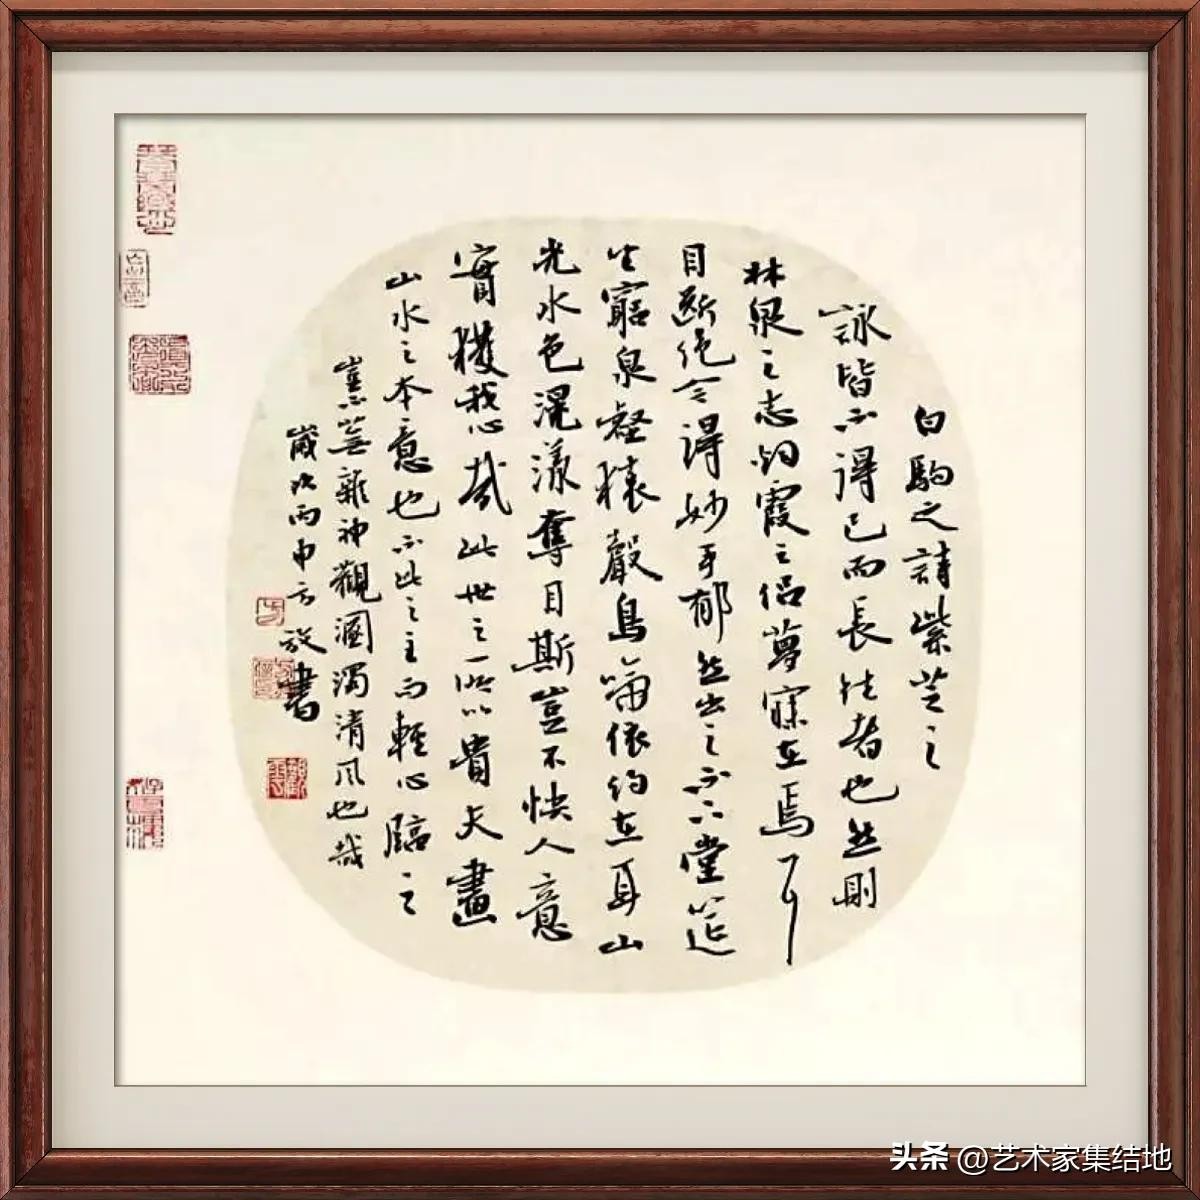 白駒之詩紫芝之
詠皆不得已而長往者也然則
林泉之志烟霞之侶夢寐在焉耳
目斷絕今得妙手郁然出之不下堂筵
坐窮泉壑猿聲鳥啼依約在耳山
光水色滉漾奪目斯豈不快人意
實獲我心哉此世之所以貴夫畫
山水之本意也不此之主而輕心臨之
豈不蕪雜神觀溷濁清風也哉
歲次丙申方放書
头条 @艺术家集结地